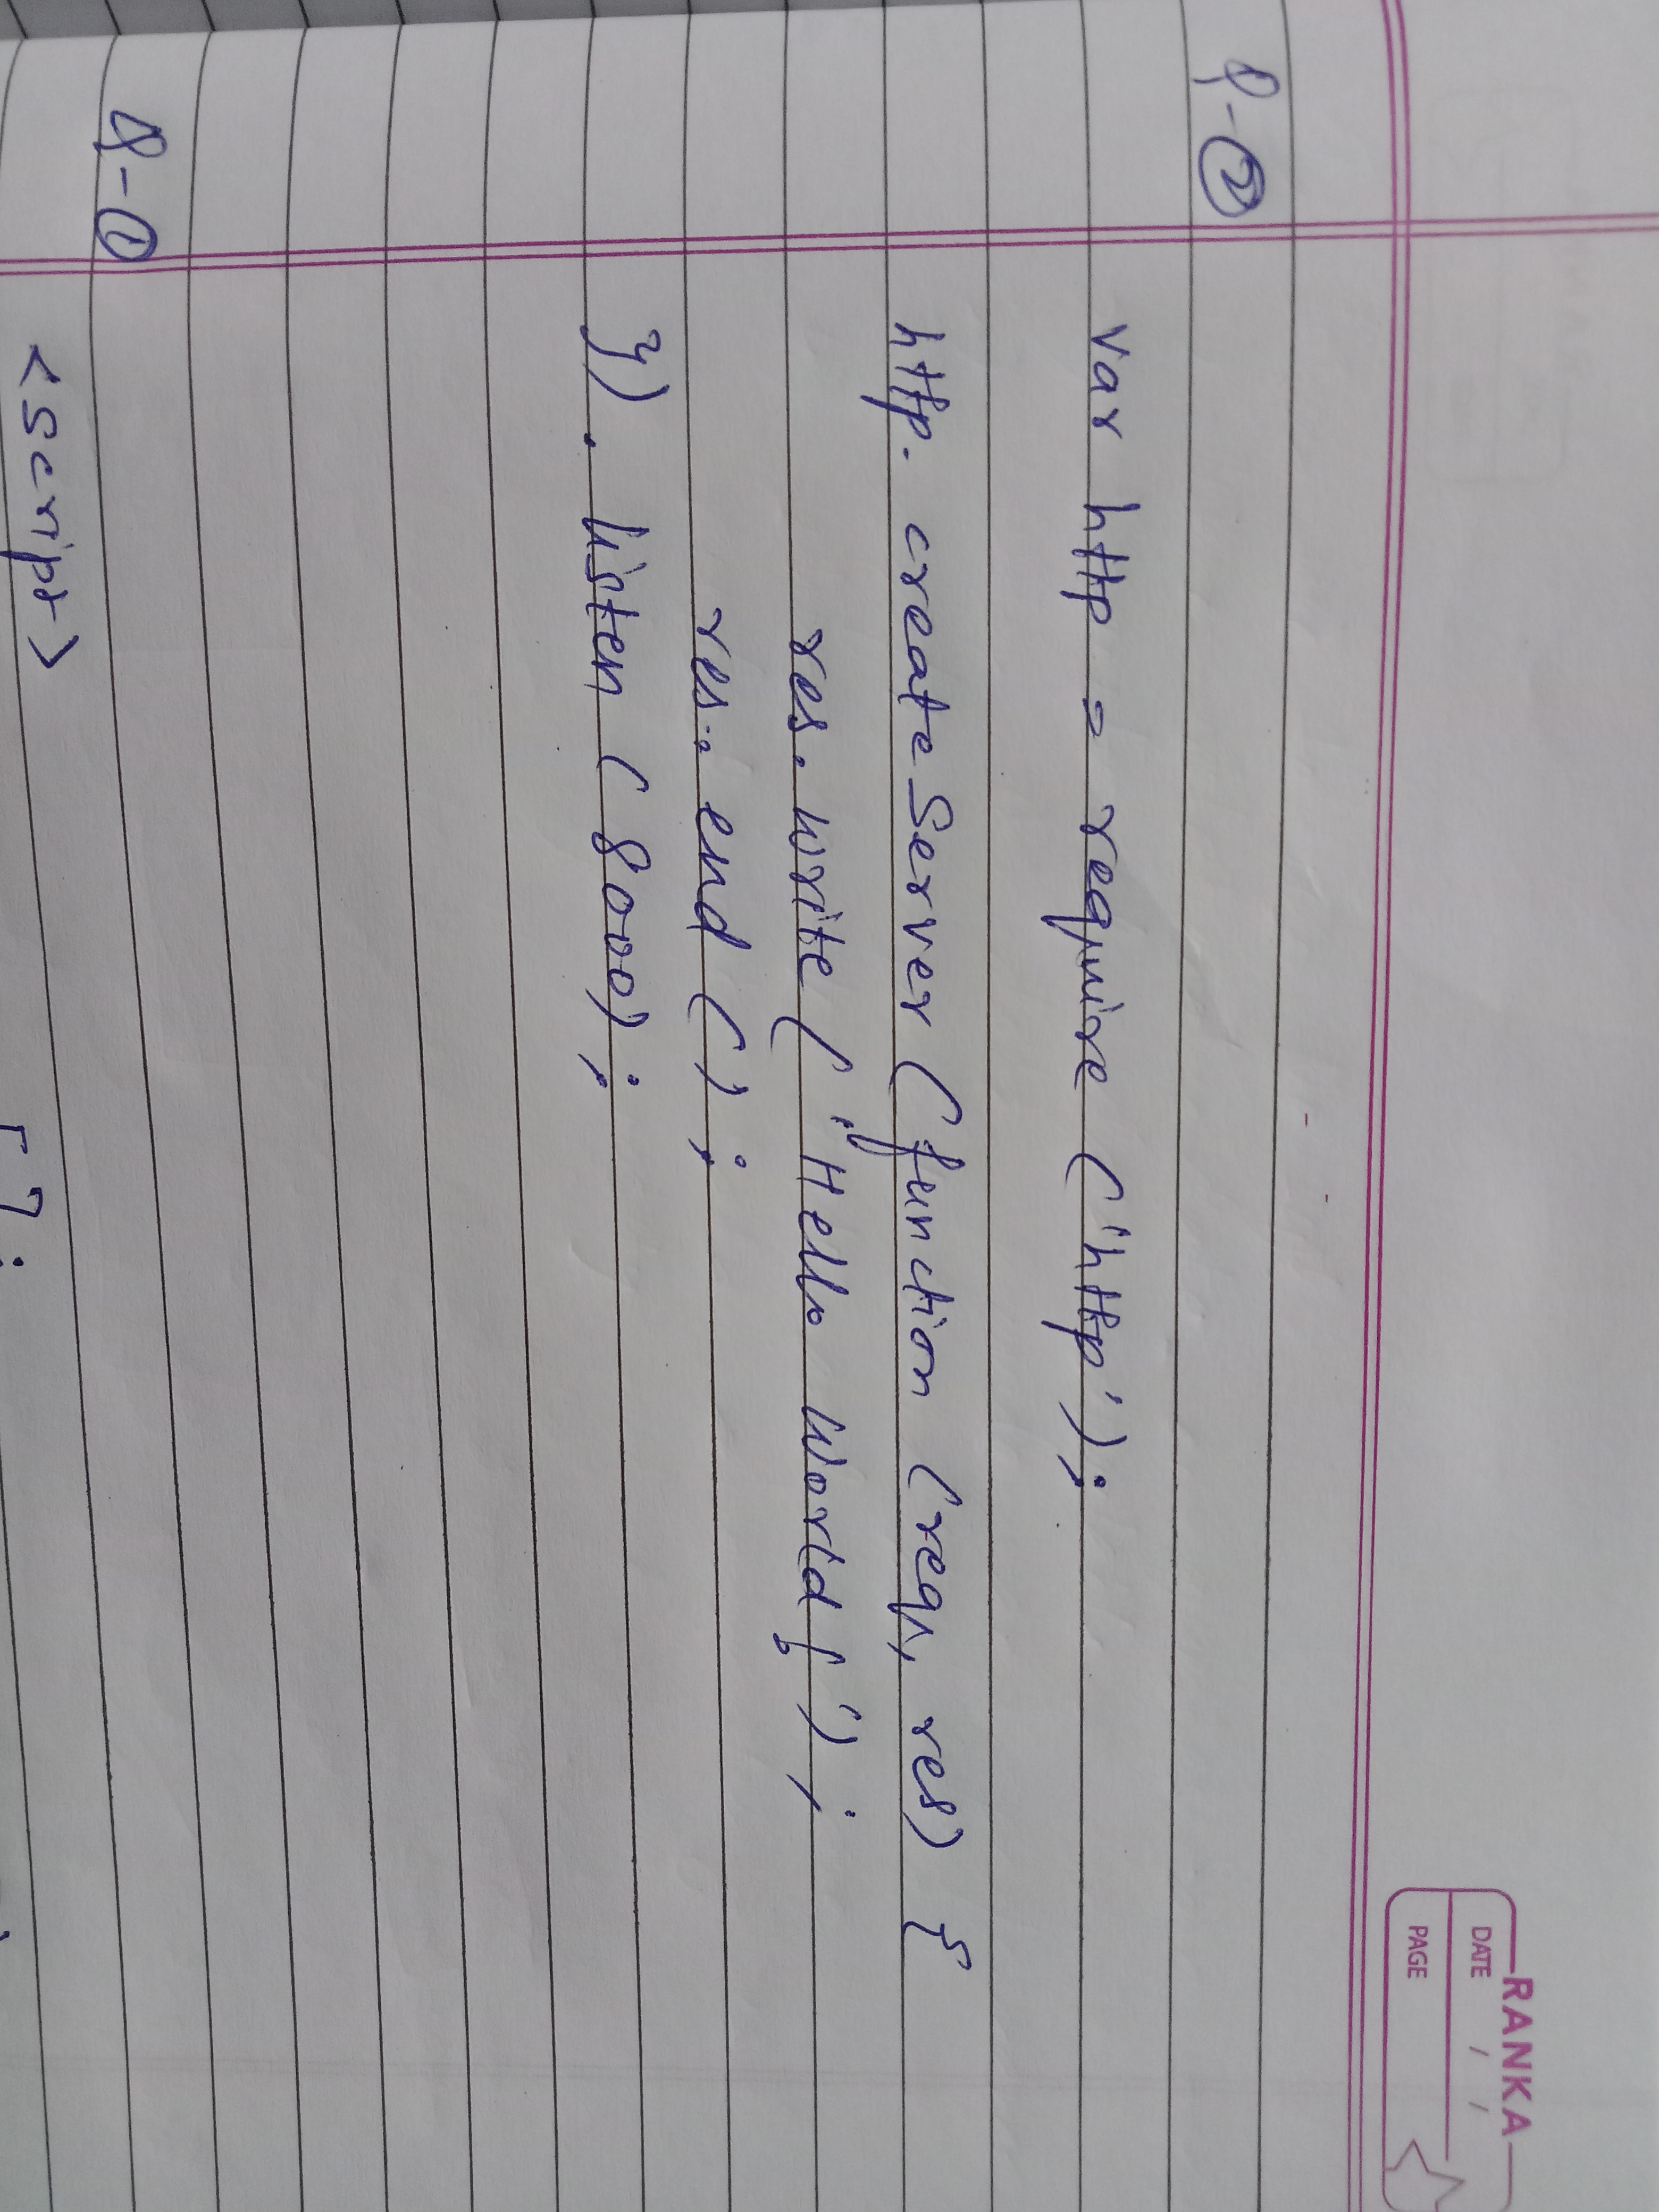 RANKA
DATE / /
PAGE
Q-②
var http = require ('http');
http. createServer (function (req, res) {
res. write ( 'Hello World!');
res.. end ( );
}) . listen ( 8000);
Q-①
<script>
[ ];